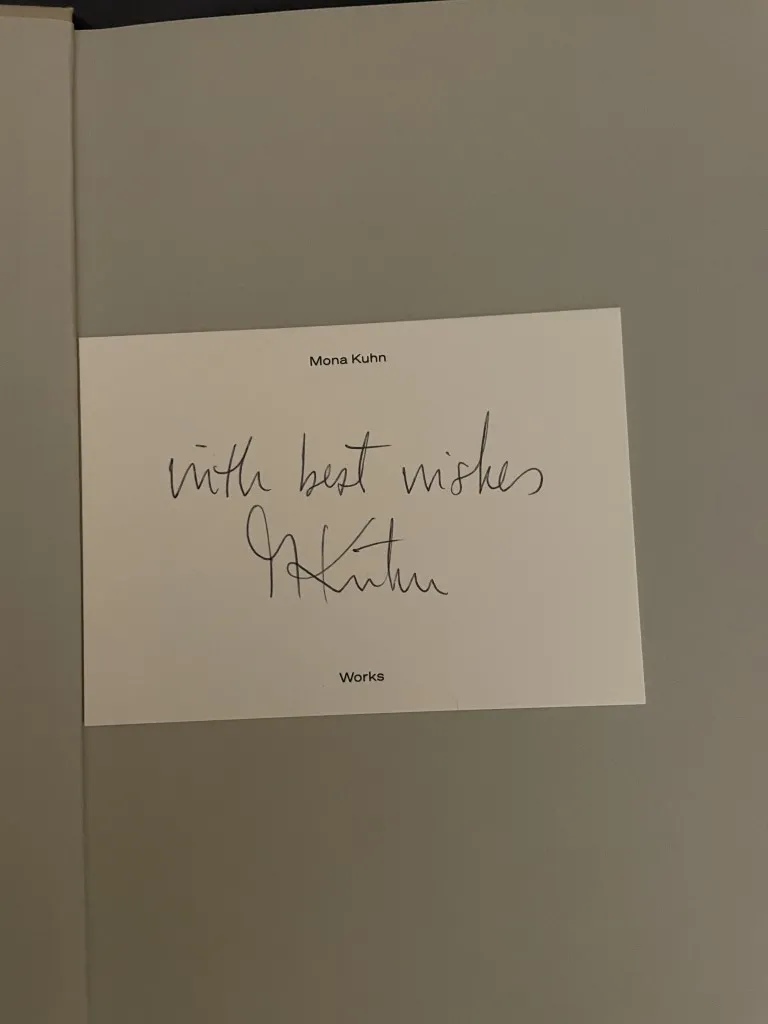 Mona Kuhn
with best wishes
MKuhn
Works